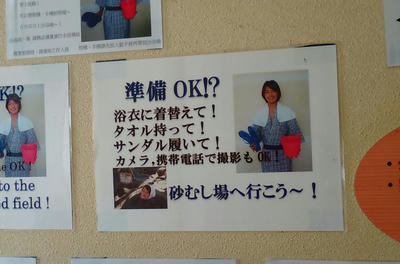 準備 OK!?
浴衣に着替えて!
タオル持って!
サンダル履いて!
カメラ,携帯電話で撮影もOK!
砂むし場へ行こう~!
OK!
to the
d field!